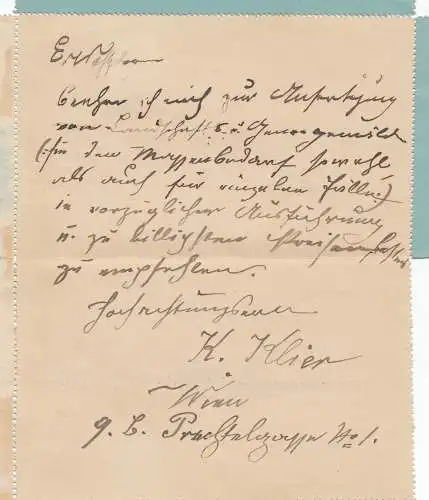 beehre ich mich zur Anfertigung
von Landschaft s. u. Genregemälde
(: für den Massenbedarf sowohl
als auch für einzelne Fälle :)
in vorzüglicher Ausführung
u. zu billigsten Preisen
zu empfehlen.
Hochachtungsvoll
K. Klier
Wien
9. B. Prechtelgasse No 1.